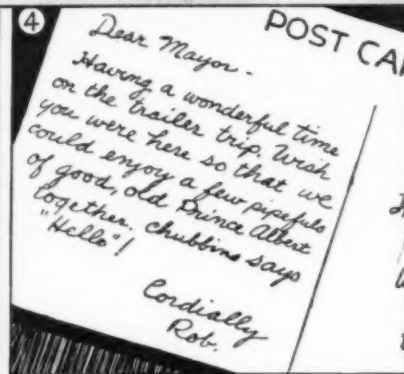 4
POST CA
Dear Mayor -
Having a wonderful time
on the trailer trip. Wish
you were here so that we
could enjoy a few pipefuls
of good, old Prince Albert
together. Chubbins says
"Hello"!
Cordially
Rob.